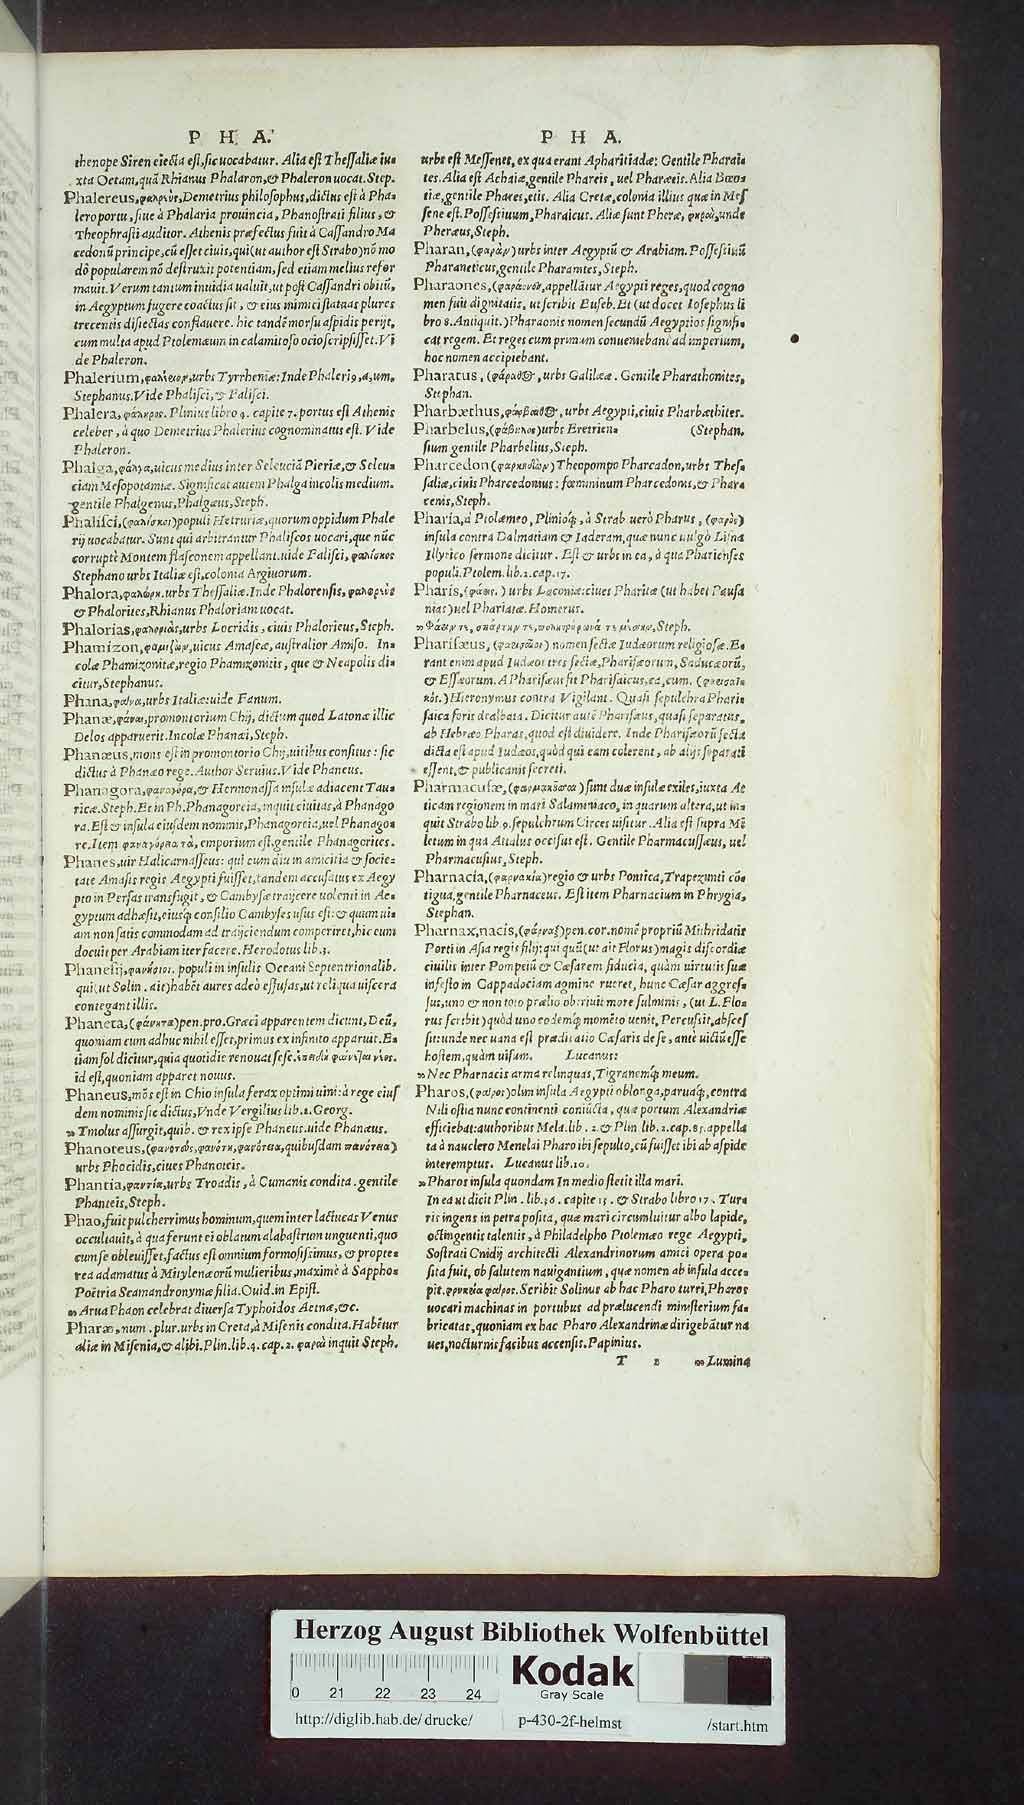 P H A.
thenope Siren eiecta est, sic uocabatur. Alia est Thessaliæ iu-
xta Oetam, quã Rhianus Phalaron, & Phaleron uocat. Step.
Phalereus, φαληρεὺς, Demetrius philosophus, dictus est à Pha-
lero portu, siue à Phalaria prouincia, Phanostrati filius, &
Theophrasti auditor. Athenis præfectus fuit à Cassandro Ma
cedonũ principe, cũ esset ciuis, qui (ut author est Strabo) nõ mo
dò popularem nõ destruxit potentiam, sed etiam melius refor
mauit. Verum tantum inuidia ualuit, ut post Cassandri obitũ,
in Aegyptum fugere coactus sit, & eius inimici statuas plures
trecentis disiectas conflauere. hic tandẽ morsu aspidis perijt,
cum multa apud Ptolemæum in calamitoso ocio scripsisset. Vi
de Phaleron.
Phalerium, urbs Tyrrheniæ: Inde Phaleri9, a, um.
Stephanus. Vide Phalisci, & Falisci.
Phalera, Plinius libro 4. capite 7. portus est Athenis
celeber, à quo Demetrius Phalerius cognominatus est. Vide
Phaleron.
Phalga, φάλγα, uicus medius inter Seleuciã Pieriæ, & Seleu-
ciam Mesopotamiæ. Significat autem Phalga incolis medium.
gentile Phalgenus, Phalgæus, Steph.
Phalisci, (φαλίσκοι) populi Hetruriæ, quorum oppidum Phale
rij uocabatur. Sunt qui arbitrantur Phaliscos uocari, que nũc
corruptè Montem flasconem appellant. uide Falisci, φαλίσκος
Stephano urbs Italiæ est, colonia Argiuorum.
Phalora, urbs Thessaliæ. Inde Phalorensis, φαλορεὺς
& Phalorites, Rhianus Phaloriam uocat.
Phalorias, φαλοριὰς, urbs Locridis, ciuis Phaloricus, Steph.
Phamizon, φαμιζὼν, uicus Amaseæ, australior Amiso. In-
colæ Phamizonitæ, regio Phamizonitis, que & Neapolis di-
citur, Stephanus.
Phana, φάνα, urbs Italiæ: uide Fanum.
Phanæ, φάναι, promontorium Chij, dictum quod Latonæ illic
Delos apparuerit. Incolæ Phanæi, Steph.
Phanæus, mons est in promontorio Chij, uitibus consitus: sic
dictus à Phanæo rege. Author Seruius. Vide Phaneus.
Phanagora, φαναγόρα, & Hermonassa insulæ adiacent Tau-
ricæ. Steph. Et in Ph. Phanagoreia, inquit ciuitas, à Phanago
ra. Est & insula eiusdem nominis, Phanagoreia, uel Phanago-
re. Item emporium est, gentile Phanagorites.
Phanes, uir Halicarnasseus: qui cum diu in amicitia & socie-
tate Amasis regis Aegypti fuisset, tandem accusatus ex Aegy
pto in Persas transfugit, & Cambysæ traijcere uolenti in Ae-
gyptum adhæsit, eiusq; consilio Cambyses usus est: & quum ui-
am non satis commodam ad traijciendum comperiret, hic eum
docuit per Arabiam iter facere. Herodotus lib. 3.
Phanesij, populi in insulis Oceani Septentrionalib.
qui (ut Solin. ait) habẽt aures adeò effusas, ut reliqua uiscera
contegant illis.
Phaneta, (φάνητα) pen. pro. Græci apparentem dicunt, Deũ,
quoniam cum adhuc nihil esset, primus ex infinito apparuit. E-
tiam sol dicitur, quia quotidie renouat sese.
id est, quoniam apparet nouus.
Phaneus, mõs est in Chio insula ferax optimi uini: à rege eius
dem nominis sic dictus, Vnde Vergilius lib. 2. Georg.
„ Tmolus assurgit, quib. & rex ipse Phaneus. uide Phanæus.
Phanoteus, (φανοτεὺς, φανότη, φανότεια, quibusdam πανόπεια)
urbs Phocidis, ciues Phanoteis.
Phantia, φαντία, urbs Troadis, à Cumanis condita. gentile
Phanteis, Steph.
Phao, fuit pulcherrimus hominum, quem inter lactucas Venus
occultauit, à qua ferunt ei oblatum alabastrum unguenti, quo
cum se obleuisset, factus est omnium formosissimus, & propte-
rea adamatus à Mitylenæorũ mulieribus, maximè à Sappho-
Poëtria Scamandronymæ filia. Ouid. in Epist.
„ Arua Phaon celebrat diuersa Typhoidos Aetnæ, &c.
Pharæ, num. plur. urbs in Creta, à Misenis condita. Habẽtur
aliæ in Misenia, & alibi. Plin. lib. 4. cap. 2. φαραὶ inquit Steph.
P H A.
urbs est Messenes, ex qua erant Apharitiadæ: Gentile Pharai-
tes. Alia est Achaiæ, gentile Phareis, uel Pharæeis. Alia Bœo-
tiæ, gentile Phares, etis. Alia Cretæ, colonia illius quæ in Mes
sene est. Possessiuum, Pharaicus. Aliæ sunt Pheræ, φηραὶ, unde
Pheræus, Steph.
Pharan, (φαρὰν) urbs inter Aegyptũ & Arabiam. Possessiuũ
Pharaneticus, gentile Pharanites, Steph.
Pharaones, appellãtur Aegypti reges, quod cogno
men fuit dignitatis, ut scribit Euseb. Et (ut docet Iosephus li
bro 8. Antiquit.) Pharaonis nomen secundũ Aegyptios signifi-
cat regem. Et reges cum primum conueniebant ad imperium,
hoc nomen accipiebant.
Pharatus, (φάραθος, urbs Galilææ. Gentile Pharathonites,
Stephan.
Pharbæthus, φάρβαιθος, urbs Aegypti, ciuis Pharbæthites.
Pharbelus, (φάρβηλος) urbs Eretrien- (Stephan.
sium gentile Pharbelius, Steph.
Pharcedon (φαρκηδὼν) Theopompo Pharcadon, urbs Thes-
saliæ, ciuis Pharcedonius: fœmininum Pharcedonis, & Phar-
cenis, Steph.
Pharia, à Ptolæmeo, Plinioq;, à Strab. uerò Pharus, (φάρος)
insula contra Dalmatiam & Iaderam, quæ nunc uulgò Lisna
Illyrico sermone dicitur. Est & urbs in ea, à qua Pharienses
populi. Ptolem. lib. 2. cap. 17.
Pharis, (φάρις.) urbs Laconiæ: ciues Pharitæ (ut habet Pausa
nias) uel Phariatæ. Homerus.
„ Φάρίν τε, σπάρτην τε, πολυτρήρωνά τε μέσσην, Steph.
Pharisæus, (φαρισαῖος) nomen sectæ Iudæorum religiosæ. E-
rant enim apud Iudæos tres sectæ, Pharisæorum, Saducæorũ,
& Essæorum. A Pharisæus fit Pharisaicus, ca, cum. (φαρισαϊ-
κός.) Hieronymus contra Vigilant. Quasi sepulchra Phari-
saica foris dealbata. Dicitur autẽ Pharisæus, quasi separatus,
ab Hebræo Pharas, quod est diuidere. Inde Pharisæorũ secta
dicta est apud Iudæos, quòd qui eam colerent, ab alijs separati
essent, & publicanis secreti.
Pharmacusæ, (φαρμακοῦσαι) sunt duæ insulæ exiles, iuxta At
ticam regionem in mari Salaminiaco, in quarum altera, ut in-
quit Strabo lib. 9. sepulchrum Circes uisitur. Alia est supra Mi
letum in qua Attalus occisus est. Gentile Pharmacussæus, uel
Pharmacusius, Steph.
Pharnacia, (φαρνακία) regio & urbs Pontica, Trapezunti cõ-
tigua, gentile Pharnaceus. Est item Pharnacium in Phrygia,
Stephan.
Pharnax, nacis, (φάρναξ) pen. cor. nomẽ propriũ Mithridatis
Ponti in Asia regis filij: qui quũ (ut ait Florus) magis discordiæ
ciuilis inter Pompeiũ & Cæsarem fiducia, quàm uirtutis suæ
infesto in Cappadociam agmine rueret, hunc Cæsar aggres-
sus, uno & non toto prælio obtriuit more fulminis, (ut L. Flo-
rus scribit) quòd uno eodemq; momẽto uenit, Percussit, absces
sit: unde nec uana est prædicatio Cæsaris de se, ante uictũ esse
hostem, quàm uisum. Lucanus:
„ Nec Pharnacis arma relinquas, Tigranemq; meum.
Pharos, (φάρος) olim insula Aegypti oblonga, paruaq;, contra
Nili ostia nunc continenti coniũcta, quæ portum Alexandriæ
efficiebat: authoribus Mela. lib. 2. & Plin lib. 2. cap. 85. appella
ta à nauclero Menelai Pharo ibi sepulto, cũ fuisset ibi ab aspide
interemptus. Lucanus lib. 10.
„ Pharos insula quondam In medio stetit illa mari.
In ea ut dicit Plin. lib. 36. capite 15. & Strabo libro 17. Tur-
ris ingens in petra posita, quæ mari circumluitur albo lapide,
octingentis talentis, à Philadelpho Ptolemæo rege Aegypti,
Sostrati Cnidij architecti Alexandrinorum amici opera po-
sita fuit, ob salutem nauigantium, quæ nomen ab insula acce-
pit. Scribit Solinus ab hac Pharo turri, Pharos
uocari machinas in portubus ad prælucendi ministerium fa-
bricatas, quoniam ex hac Pharo Alexandrinæ dirigebãtur na
ues, nocturnis facibus accensis. Papinius.
T 2 „ Lumina
Herzog August Bibliothek Wolfenbüttel
0 21 22 23 24
Kodak
Gray Scale
http://diglib.hab.de/drucke/ p-430-2f-helmst /start.htm